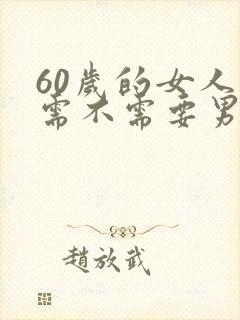 60歲的女人
需不需要男
趙放武